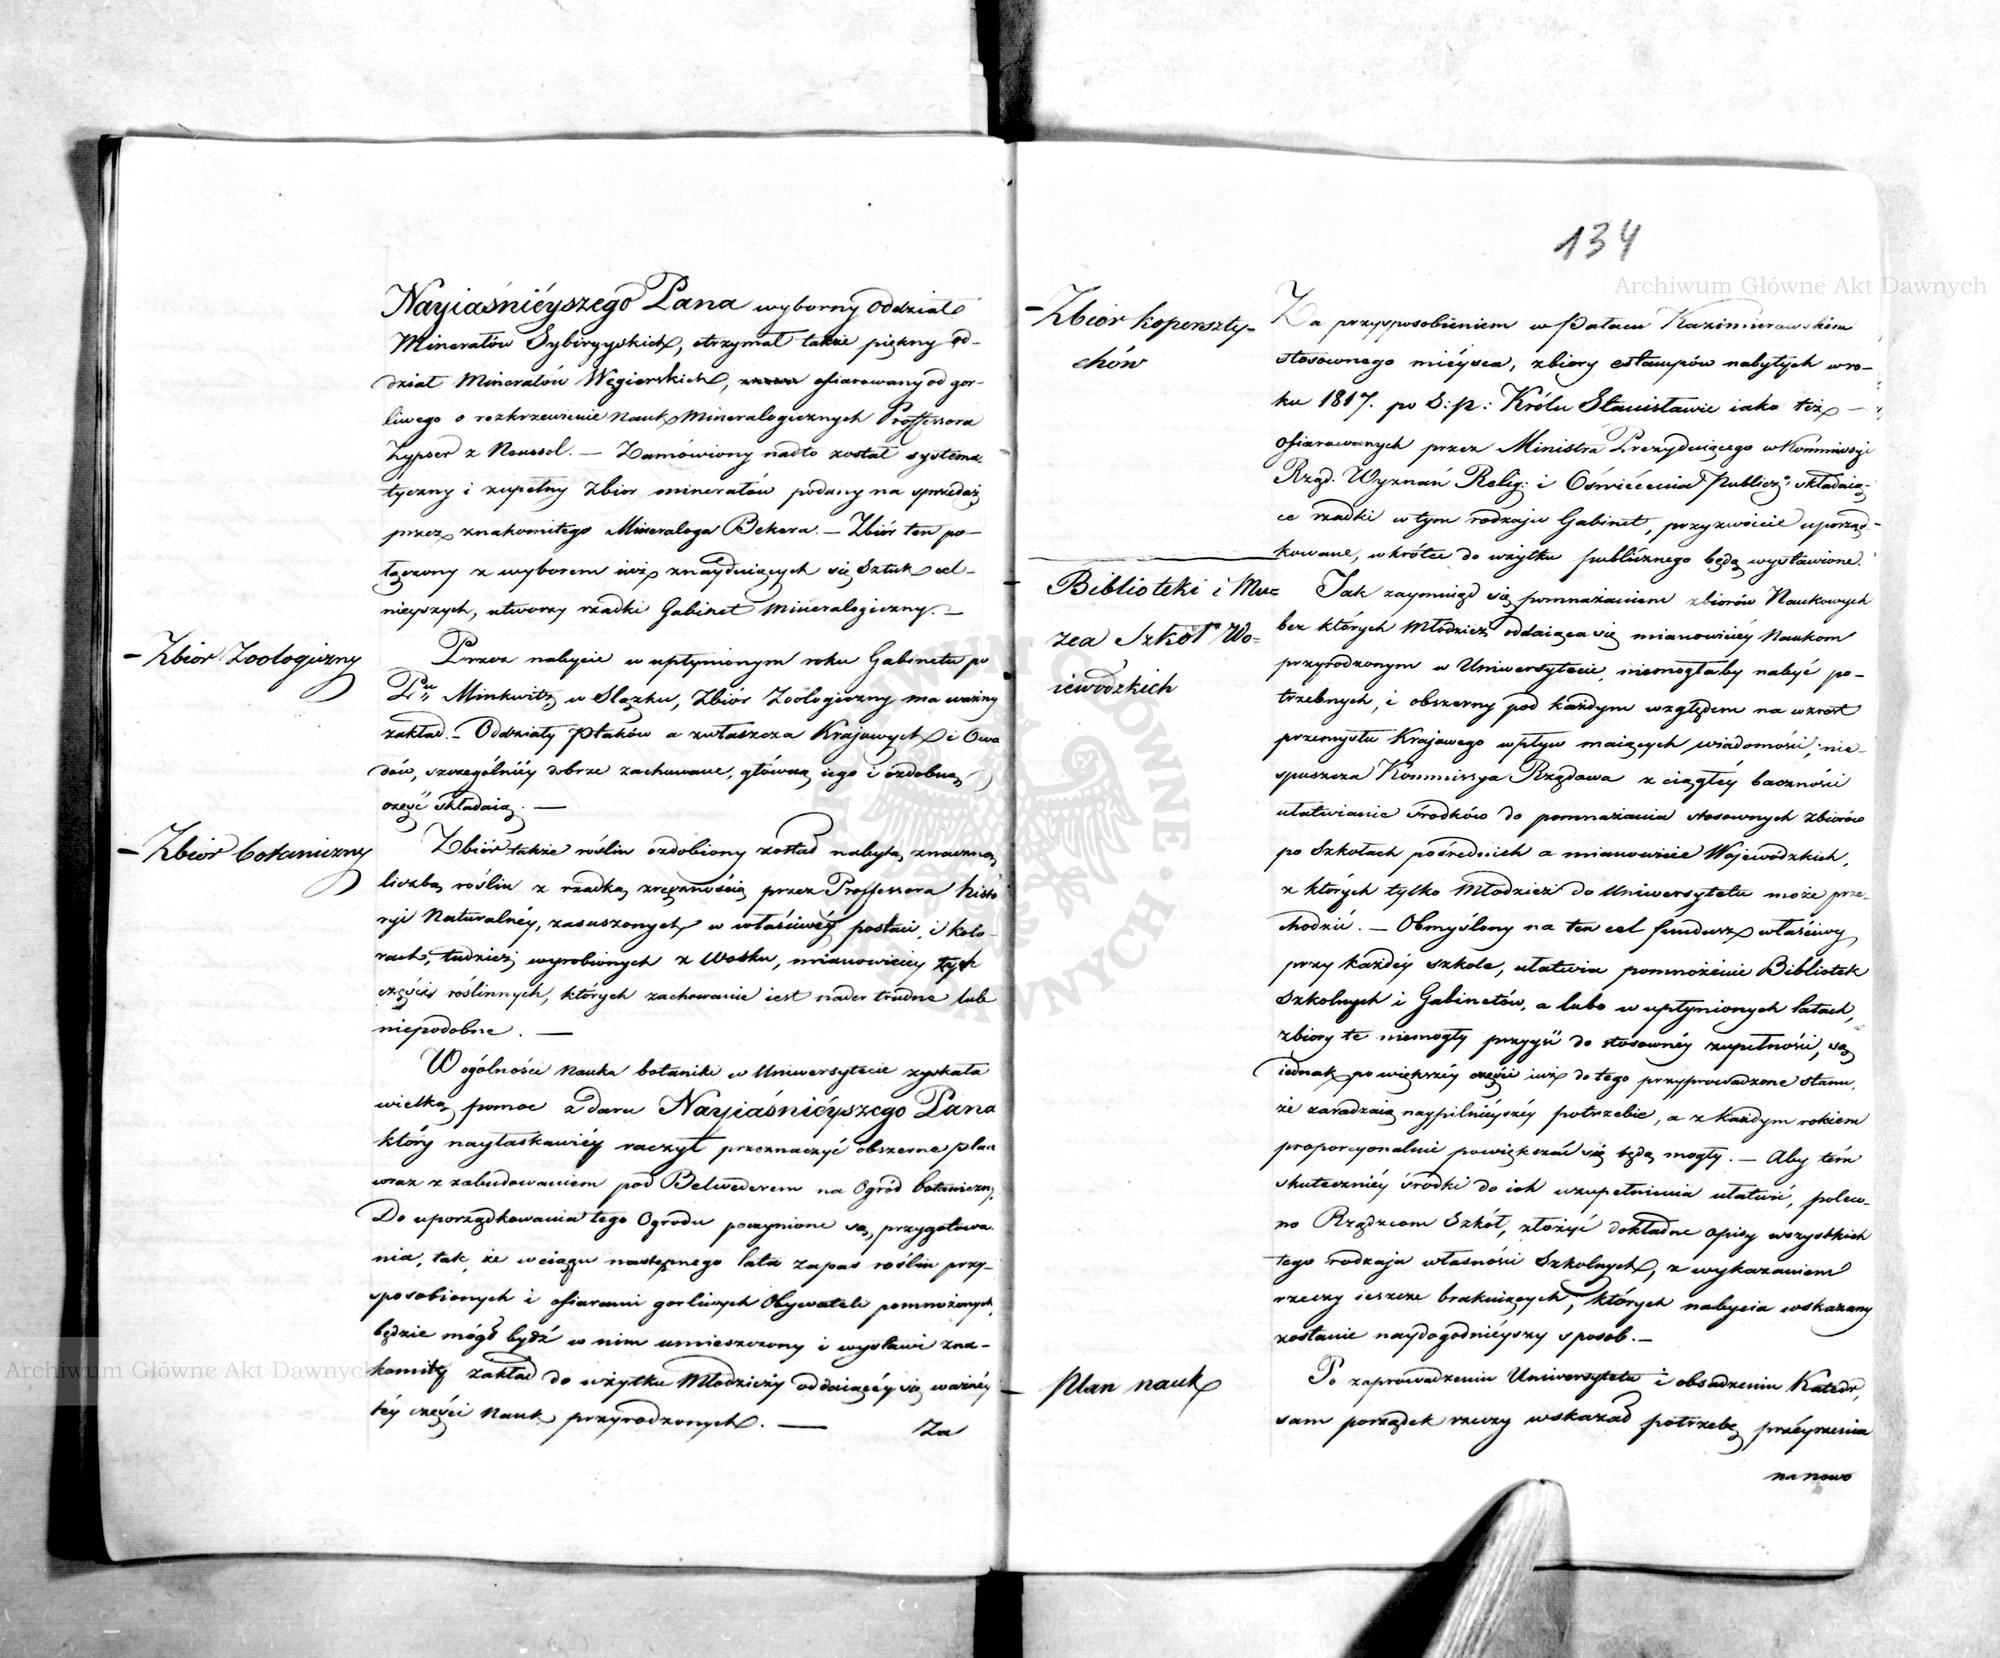 Nayiaśnieyszego Pana wyborny Oddział
Minerałów Sybiryyskich, otrzymał także piękny od-
dział Minerałów Węgierskich, ofiarowany od gor-
liwego o rozkrzewienie Nauk Mineralogicznych Professora
Zypser z Neussol. — Zamówiony nadto został systema-
tyczny i zupełny Zbior minerałów podany na sprzedaż
przez znakomitego Mineraloga Bekera. — Zbiór ten po-
łączony z wyborem iuż znayduiących się Sztuk cel-
nieyszych, utworzy rzadki Gabinet Mineralogiczny. —
— Zbior Zoologiczny
Przez nabycie w upłynionym roku Gabinetu po
Pu Minkwitz w Slązku, Zbiór Zoologiczny ma ważny
zakład. — Oddziały Ptaków a zwłaszcza Krajowych i Owa
dów, szczególniéy dobrze zachowane, główną iego i ozdobną
część składaią. —
— Zbior botaniczny
Zbiór także roślin ozdobiony został nabytą znaczną
liczbą roślin z rzadką zręcznością przez Professora histo
ryi Naturalnéy, zasuszonych w właściwéy postaci i kolo-
rach; tudzież wyrobionych z Wosku, mianowiciey tych
części roślinnych, których zachowanie iest nader trudne lub
niepodobne. —
W ogólności Nauka botaniki w Uniwersytecie zyskała
wielką pomoc z daru Nayiaśniéyszego Pana
który nayłaskawiéy raczył przeznaczyć obszerne place
wraz z zabudowaniem pod Belwederem na Ogród botaniczny,
Do uporządkowania tego Ogrodu poczynione są przygotowa-
nia, tak, że w ciągu następnego lata zapas roślin przy-
sposobionych i ofiarami gorliwych Obywateli pomnożonych,
będzie mógł bydź w nim umieszczony i wystawi zna-
komity zakład do użytku Młodzieży oddaiącéy się ważnéy
téy części Nauk przyrodzonych. —
Za
134
— Zbior koperszty-
chów
Za przysposobieniem w Pałacu Kazimierowskim
stosownego mieysca, zbiory estampów nabytych w ro-
ku 1817. po S: p: Królu Stanisławie iako też —
ofiarowanych przez Ministra Prezyduiącego w Kommissyi
Rząd. Wyznań Relig: i Oświécenia Publicz: składaią-
ce rzadki w tym rodzaju Gabinet, przyzwoicie uporząd-
kowane, wkrótce do użytku publicznego będą wystawione.
— Biblioteki i Mu-
zea Szkół Wo-
iewodzkich
Jak zaymuiąc się pomnażaniem zbiorów Naukowych
bez których Młodzież oddaiąca się mianowiciéy Naukom
przyrodzonym w Uniwersytecie, niemogłaby nabyć po-
trzebnych, i obszerny pod każdym względem na wzrost
przemysłu Krajowego wpływ maiących wiadomości, nie-
spuszcza Kommissya Rządowa z ciągłéy baczności
ułatwianie środków do pomnażania stosownych zbiorów
po Szkołach pośrednich a mianowicie Wojewodzkich,
z których tylko Młodzież do Uniwersytetu może prze-
chodzić. — Obmyślony na ten cel fundusz właściwy
przy każdéy szkole, ułatwia pomnożenie Bibliotek
Szkolnych i Gabinetów, a lubo w upłynionych latach,
zbiory te niemogły przyyść do stosownéy zupełności, są
iednak po większéy części iuż do tego przyprowadzone stanu,
że zaradzaią naypilniéyszéy potrzebie, a z każdym rokiem
proporcyonalnie powiększać się będą mogły. — Aby tém
skuteczniéy środki do ich uzupełnienia ułatwić, poleco-
no Rządcom Szkół, złożyć dokładne opisy wszystkich
tego rodzaju własności Szkolnych, z wykazaniem
rzeczy ieszcze brakuiących, których nabycia wskazany
zostanie naydogodniéyszy sposob. —
— Plan nauk
Po zaprowadzeniu Uniwersytetu i obsadzeniu Katedr,
sam porządek rzeczy wskazał potrzebę przéyrzenia
na nowo
Archiwum Główne Akt Dawnych
Archiwum Główne Akt Dawnych